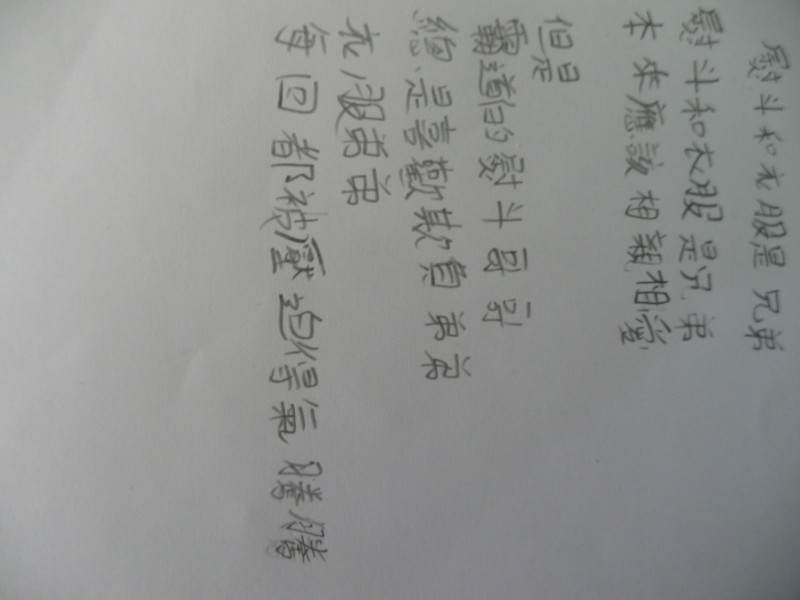 熨斗和衣服是兄弟
熨斗和衣服是兄弟
本來應該相親相愛
但是
霸道的熨斗哥哥
總是喜歡欺負弟弟
衣服弟弟
每回都被壓迫得氣騰騰